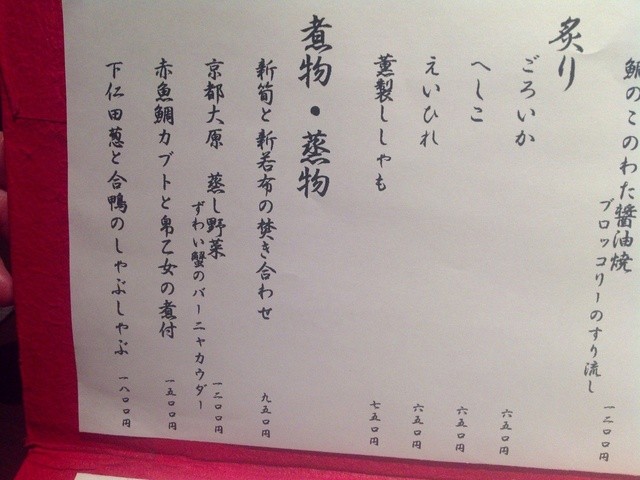 鯛のこのわた醤油焼
ブロッコリーのすり流し
一二〇〇円
炙り
ごろいか
六五〇円
へしこ
六五〇円
えいひれ
六五〇円
薫製ししゃも
七五〇円
煮物・蒸物
新筍と新若布の焚き合わせ
九五〇円
京都大原 蒸し野菜
ずわい蟹のバーニャカウダー
一二〇〇円
赤魚鯛カブトと早乙女の煮付
一五〇〇円
下仁田葱と合鴨のしゃぶしゃぶ
一八〇〇円